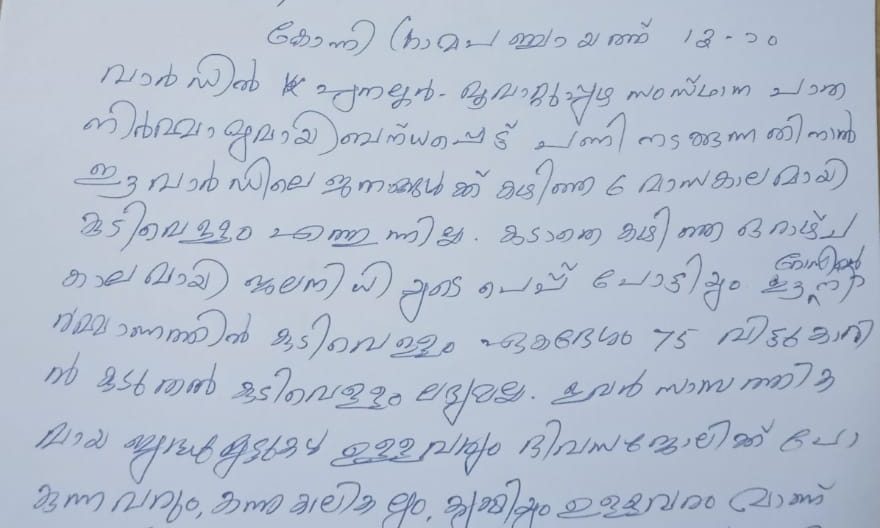 കോന്നി ഗ്രാമപഞ്ചായത്ത് 12-ാം
വാർഡിൽ പുനലൂർ-മൂവാറ്റുപുഴ സംസ്ഥാന പാത
നിർമ്മാണവുമായി ബന്ധപ്പെട്ട് പണി നടക്കുന്നതിനാൽ
ഈ വാർഡിലെ ജനങ്ങൾക്ക് കഴിഞ്ഞ 6 മാസകാലമായി
കുടിവെള്ളം എത്തുന്നില്ല. കൂടാതെ കഴിഞ്ഞ ഒരാഴ്ച
കാലമായി ജലനിധിയുടെ പൈപ്പ് പോട്ടിയും
കുടിവെള്ളം ഏകദേശം 75 വീട്ടുകാരി
ൽ കൂടുതൽ കുടിവെള്ളം ലഭ്യമല്ല. ഇവർ സാമ്പത്തിക
മായ ബുദ്ധിമുട്ടുകൾ ഉള്ളവരും ദിവസജോലിക്ക് പോ
കുന്നവരും, കന്നുകാലികളും, കൃഷിയും ഉള്ളവരും ആണ്